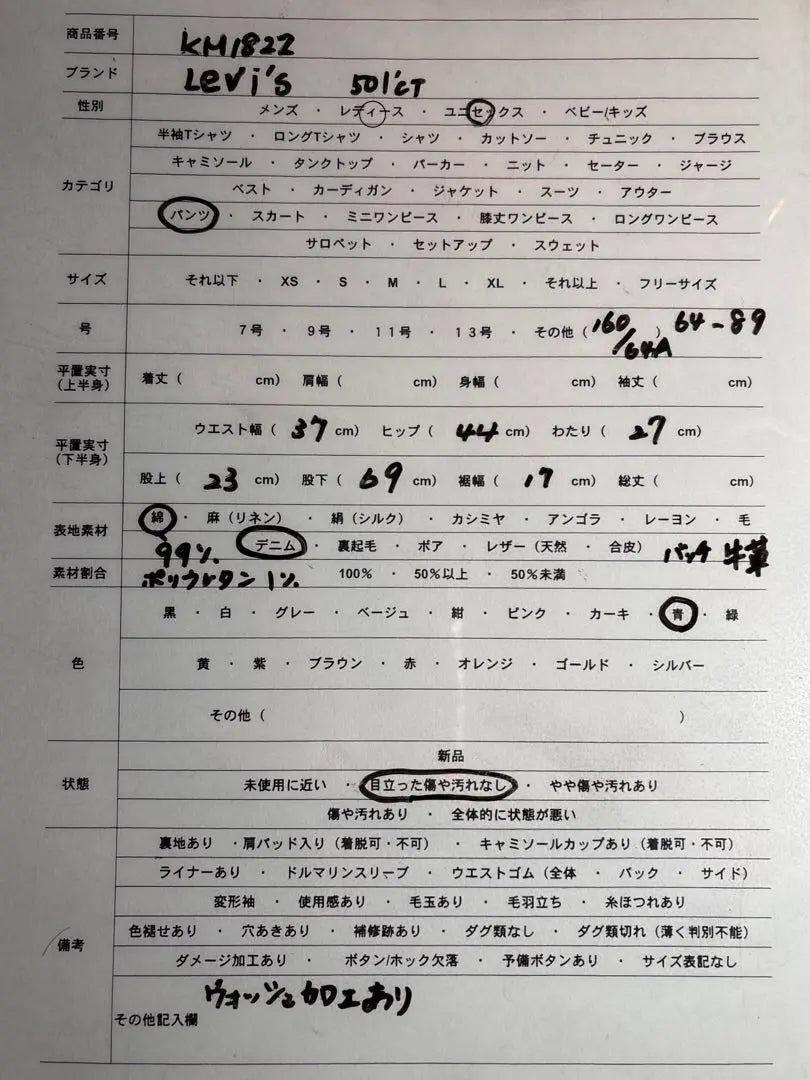 商品番号 KM1822
ブランド Levi's 501'CT
性別 メンズ ・ レディース ・ ユニセックス ・ ベビー/キッズ
半袖Tシャツ ・ ロングTシャツ ・ シャツ ・ カットソー ・ チュニック ・ ブラウス
キャミソール ・ タンクトップ ・ パーカー ・ ニット ・ セーター ・ ジャージ
カテゴリ ベスト ・ カーディガン ・ ジャケット ・ スーツ ・ アウター
パンツ ・ スカート ・ ミニワンピース ・ 膝丈ワンピース ・ ロングワンピース
サロペット ・ セットアップ ・ スウェット
サイズ それ以下 ・ XS ・ S ・ M ・ L ・ XL ・ それ以上 ・ フリーサイズ
号 7号 ・ 9号 ・ 11号 ・ 13号 ・ その他（160/64A） 64-89
平置実寸
（上半身） 着丈（ cm） 肩幅（ cm） 身幅（ cm） 袖丈（ cm）
ウエスト幅（ 37 cm） ヒップ（ 44 cm） わたり（ 27 cm）
平置実寸
（下半身）
股上（ 23 cm） 股下（ 69 cm） 裾幅（ 17 cm） 総丈（ cm）
綿 ・ 麻（リネン） ・ 絹（シルク） ・ カシミヤ ・ アンゴラ ・ レーヨン ・ 毛
表地素材
99% デニム ・ 裏起毛 ・ ボア ・ レザー（天然 ・ 合皮） パッチ 牛革
素材割合 ポリウレタン 1% 100% ・ 50%以上 ・ 50%未満
黒 ・ 白 ・ グレー ・ ベージュ ・ 紺 ・ ピンク ・ カーキ ・ 青 ・ 緑
色 黄 ・ 紫 ・ ブラウン ・ 赤 ・ オレンジ ・ ゴールド ・ シルバー
その他（ ）
新品
状態 未使用に近い ・ 目立った傷や汚れなし ・ やや傷や汚れあり
傷や汚れあり ・ 全体的に状態が悪い
裏地あり ・肩パッド入り（着脱可・不可） ・ キャミソールカップあり（着脱可・不可）
ライナーあり ・ ドルマリンスリーブ ・ ウエストゴム（全体 ・ バック ・ サイド）
変形袖 ・ 使用感あり ・ 毛玉あり ・ 毛羽立ち ・ 糸ほつれあり
色褪せあり ・ 穴あきあり ・ 補修跡あり ・ ダグ類なし ・ ダグ類切れ（薄く判別不能）
備考
ダメージ加工あり ・ ボタン/ホック欠落 ・ 予備ボタンあり ・ サイズ表記なし
ウォッシュ加工あり
その他記入欄